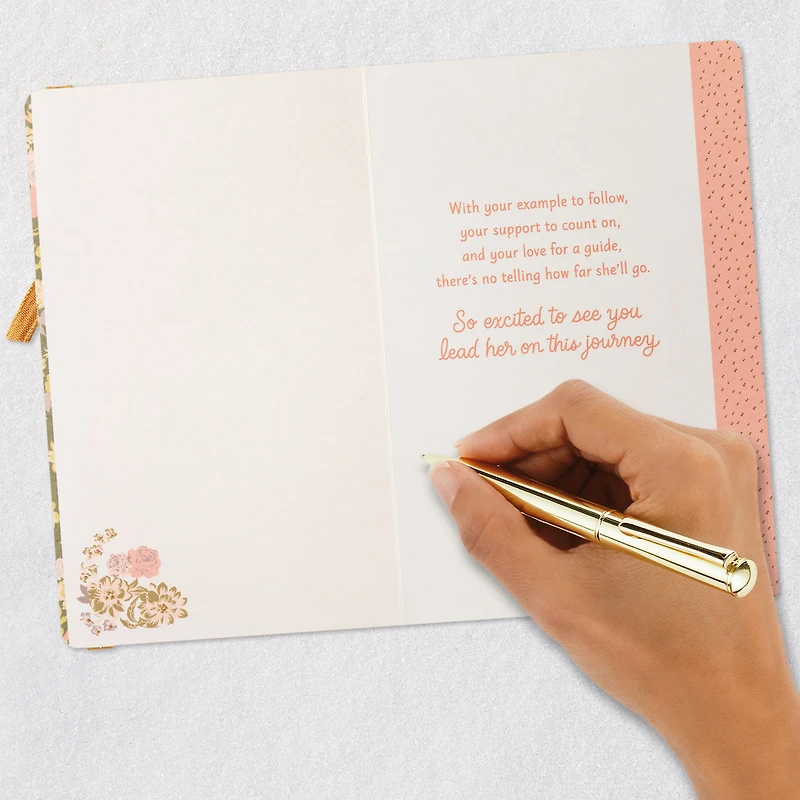 With your example to follow,
your support to count on,
and your love for a guide,
there's no telling how far she'll go.
So excited to see you
lead her on this journey